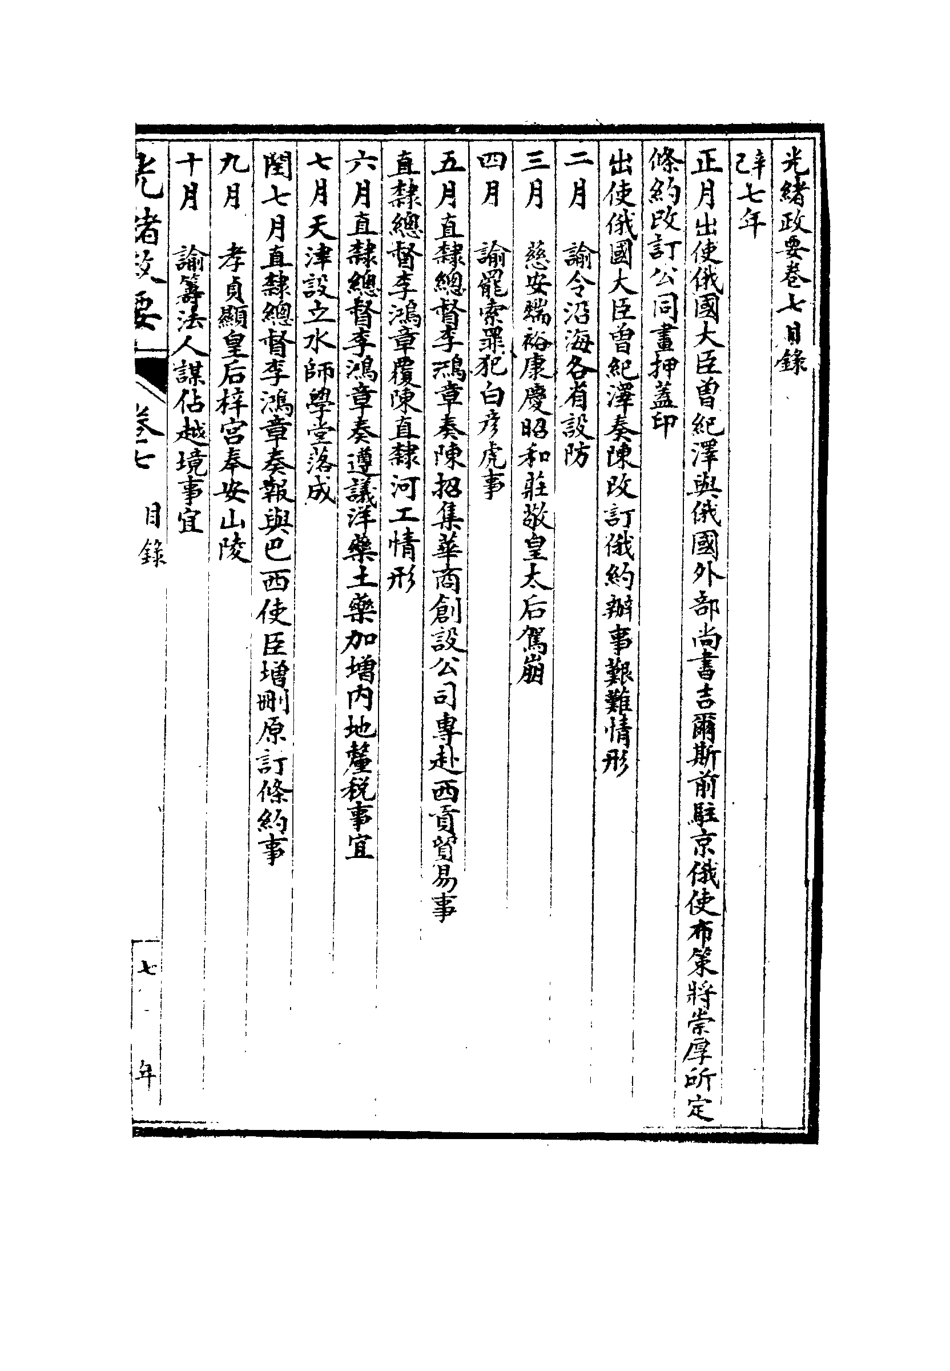 光緒政要卷七目錄
辛巳七年
正月出使俄國大臣曾紀澤與俄國外部尚書吉爾斯前駐京俄使布策將崇厚所定
條約改訂公同畫押蓋印
出使俄國大臣曾紀澤奏陳改訂俄約辦事艱難情形
二月　諭令沿海各省設防
三月　慈安端裕康慶昭和莊敬皇太后駕崩
四月　諭罷索罪犯白彥虎事
五月直隸總督李鴻章奏陳招集華商創設公司專赴西貢貿易事
直隸總督李鴻章覆陳直隸河工情形
六月直隸總督李鴻章奏遵議洋藥土藥加增內地釐稅事宜
七月天津設立水師學堂落成
閏七月直隸總督李鴻章奏報與巴西使臣增刪原訂條約事
九月　孝貞顯皇后梓宮奉安山陵
十月　諭籌法人謀佔越境事宜
光緒政要　卷七　目錄　七　年